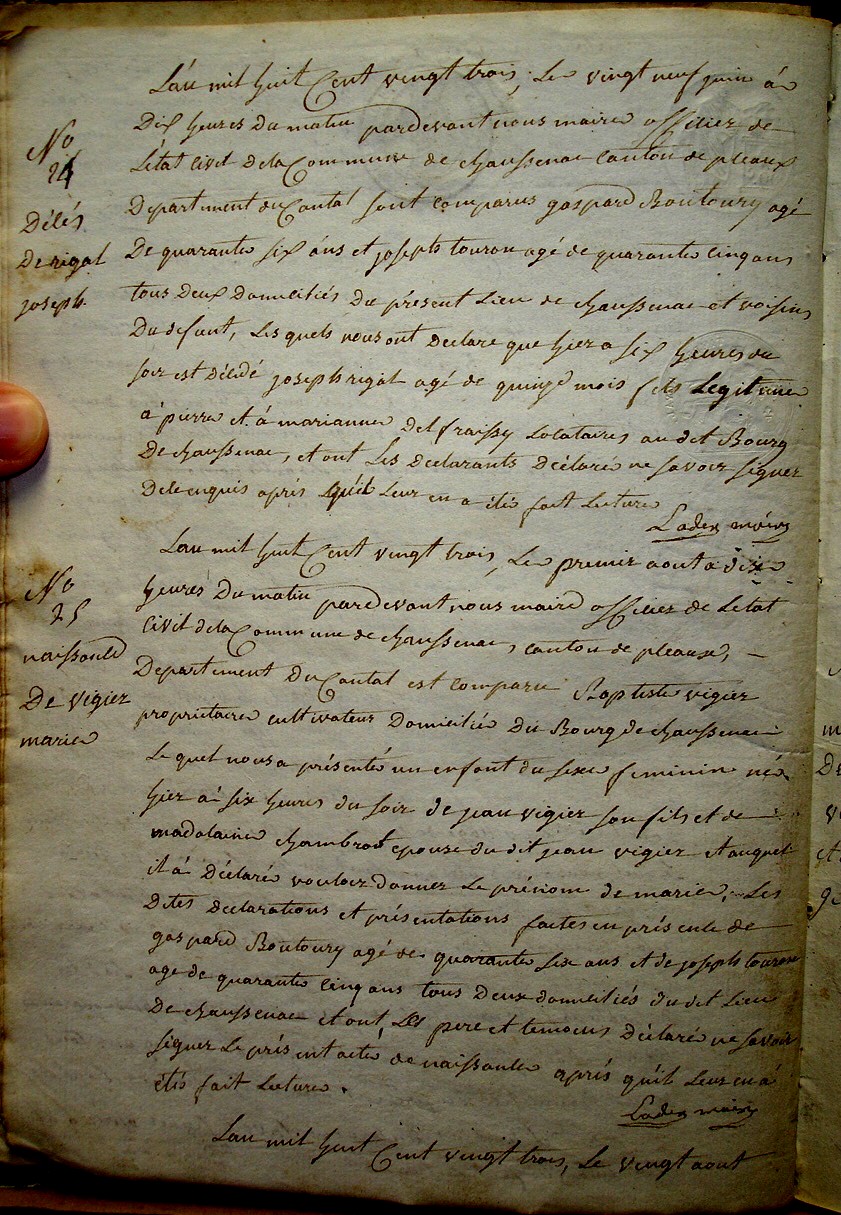 L'an mil huit Cent vingt trois, Le vingt neuf juin à
Dix heures du matin pardevant nous maire officier de
L'état Civil de la Commune de chaussenac canton de pleaux
Departement du Cantal sont comparus gaspard Boutoury agé
De quarante six ans et joseph touron agé de quarante cinq ans
tous deux domiciliés du présent Lieu de chaussenac et voisins
Du defunt, Les quels nous ont declaré que hier a six heures du
soir est décédé joseph rigal agé de quinze mois fils Legitime
à pierre et à marianne delfraissy Locataires au dit Bourg
De chaussenac, et ont Les declarants déclaré ne savoir signer
De ce enquis après qu'il Leur en a été fait Lecture
No
24
Décés
De rigal
joseph
L'an mil huit Cent vingt trois, Le premier aout à dix
heures Du matin pardevant nous maire officier de L'etat
Civil de la Commune de chaussenac, canton de pleaux,
Departement du Cantal est comparu Baptiste vigier
proprietaire cultivateur Domicilié du Bourg de chaussenac
Le quel nous a présenté un enfant du sexe feminin né
hier à six heures du soir de jean vigier son fils et de
madelaine chambrot epouse du dit jean vigier et auquel
il à Déclaré vouloir donner Le prénom de marie, Les
Dites declarations et présentations faites en présence de
gaspard Boutoury agé de quarante six ans et de joseph touron
age de quarante cinq ans tous Deux domiciliés du dit Lieu
De chaussenac et ont, Les pere et temoins Déclaré ne savoir
signer Le présent acte de naissance après qu'il Leur en à
été fait Lecture.
No
25
naissance
De vigier
marie
L'an mil huit Cent vingt trois, Le vingt aout